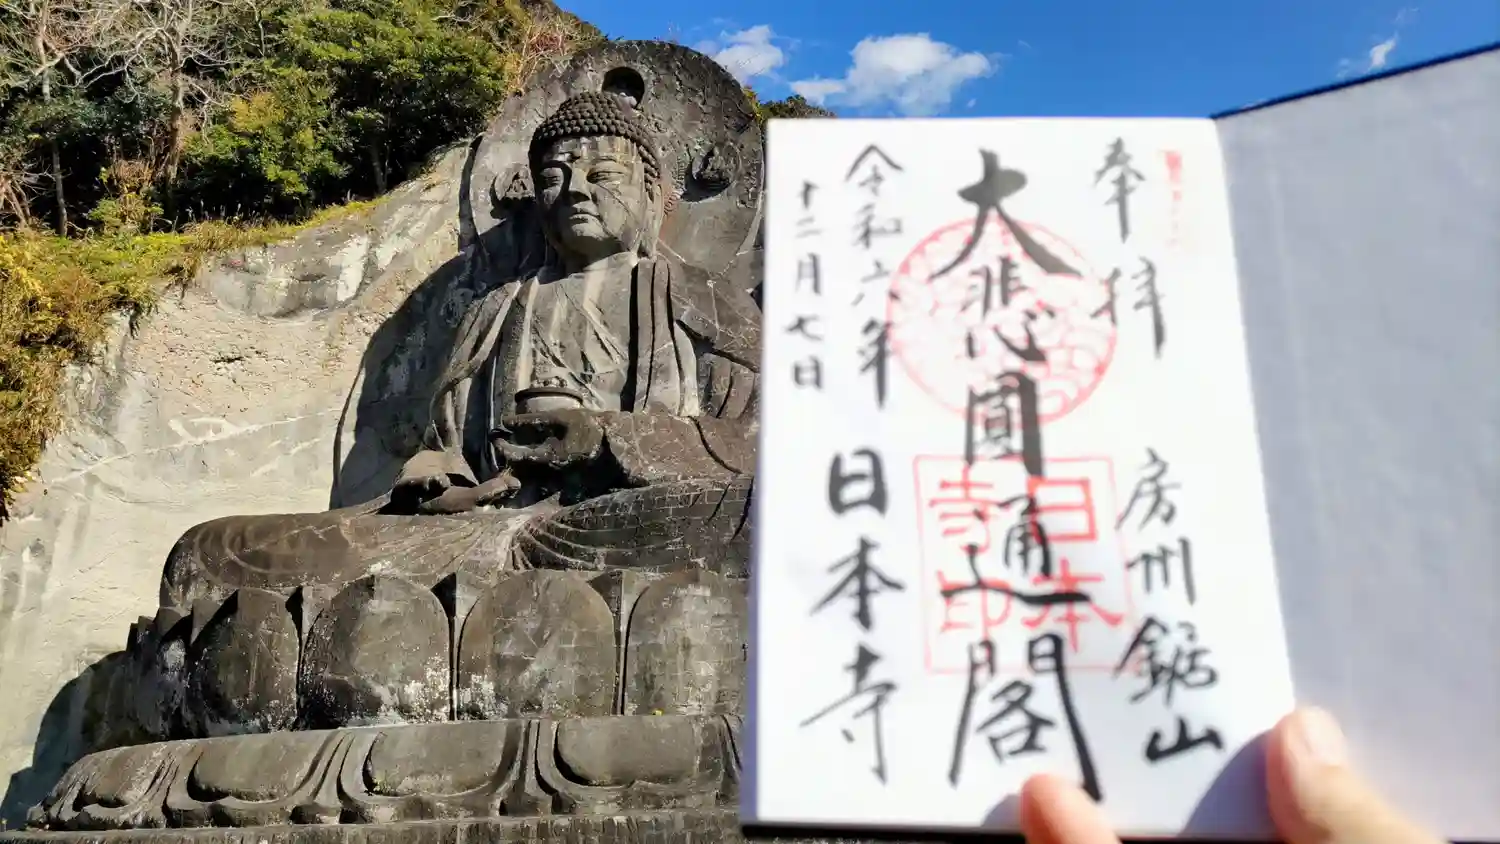 奉拝
房州鋸山
大悲心圓通閣
日本
寺印
令和六年
十二月七日
日本寺